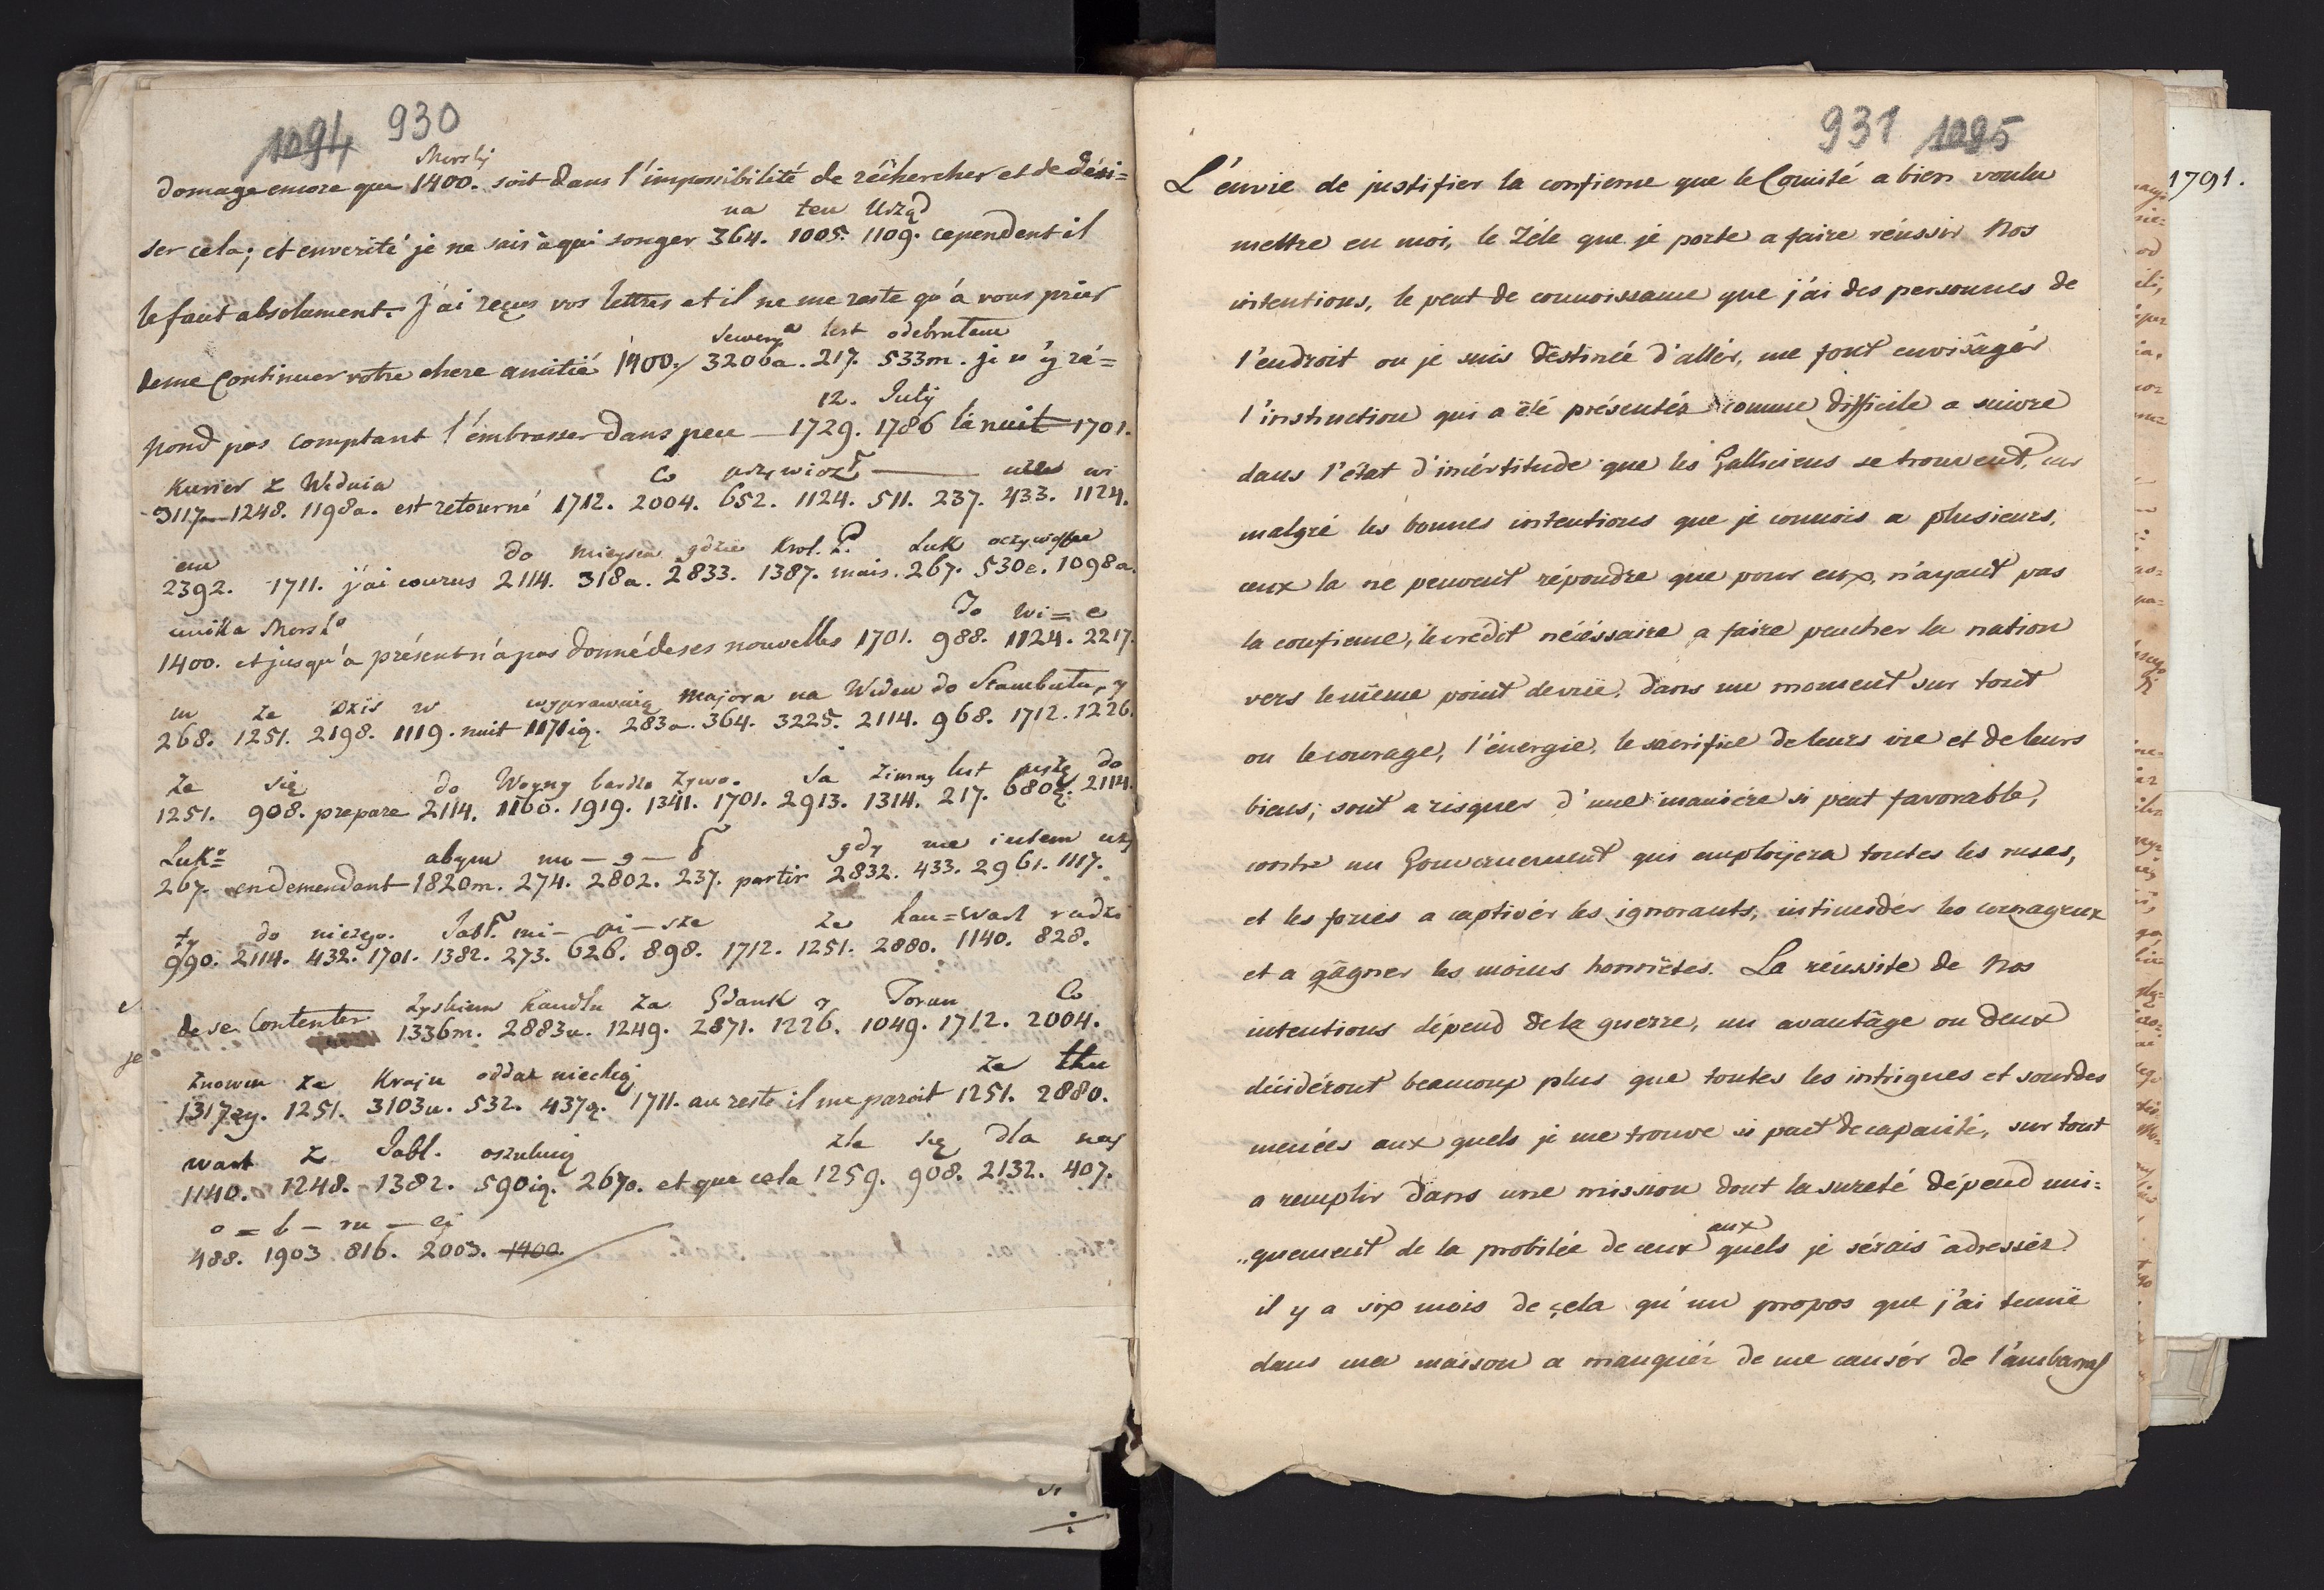 1094 930
Morski
domage encore que 1400. soit dans l'impossibilité de réchercher et de dési=
na ten Urząd
ser cela; et enverité je ne sais à qui songer 364. 1005. 1109. cependent il
le faut absolument. J'ai reçus vos lettres et il ne me reste qu'à vous prier
Seweryna list odebrałem
deme Continuer votre chere amitié 1400./ 3206a. 217. 533m. je n'y ré=
12. July
pond pas comptant l'embrasser dans peu — 1729. 1786 la nuit 1701.
Kurier z Wiednia Co przywiózł
3117. 1248. 1198a. est retourné 1712. 2004. 652. 1124. 511. 237. 433. 1124.
em do mieysca gdzie Krol. P. Luk oczywiste
2392. 1711. j'ai courus 2114. 318a. 2833. 1387. mais. 267. 530e. 1098a.
unika Morsko To wi = e
1400. et jusqu'a présent n'a pas donné de ses nouvelles 1701. 988. 1124. 2217.
m że Dziś w wyprawuią Majora na Wideń do Stambułu, y
268. 1251. 2198. 1119. nuit 1171ią. 283a. 364. 3225. 2114. 968. 1712. 1226.
że się do Woyny bardzo żywo. Ja zimny list piszę do
1251. 908. prepare 2114. 1160. 1919. 1341. 1701. 2913. 1314. 217. 680ę. 2114.
Luko= abym mo — g — ł gdy nie iestem uży
267. endemendant 1820m. 274. 2802. 237. partir 2832. 433. 2961. 1117.
ty do niczego. Jabł. mi — pi — sze że han = wart radzi
990. 2114. 432. 1701. 1382. 273. 626. 898. 1712. 1251. 2880. 1140. 828.
Zyskiem handlu za Gdansk y Torun Co
de se Contenter 1336m. 2883u. 1249. 2871. 1226. 1049. 1712. 2004.
znowu że Kraju oddać niechcą że
1317zy. 1251. 3103u. 532. 437ą. 1711. au reste il me paroit 1251. 2880.
wart z Jabł. oszukuią źle się dla nas
1140. 1248. 1382. 590ią. 267o. et que cela 1259. 908. 2132. 407.
o = b — ru — ci
488. 1903 816. 2003. 1400.
931 1095
L'envie de justifier la confience que le Comité a bien voulu
mettre en moi, le Zéle que je porte a faire réussir Nos
intentions, le peut de connoissance que j'ai des personnes de
l'endroit ou je suis déstinée d'allér, me font envisâgér
l'instruction qui a été présentéz comme difficile a suivre
dans l'état d'incértitude que les Galliciens se trouvent, car
malgré les bonnes intentions que je connois a plusieurs,
ceux la ne peuvent répondre que pour eux, n'ayant pas
la confience, le credit nécéssaire a faire pencher la nation
vers lemême point devuë, dans un moment sur tout
ou le courage, l'énergie, le sacrifice de leurs vie et de leurs
biens; sont a risquer d'une maniére si peut favorable,
contre un Gouvernement qui emploÿera toutes les ruses,
et les forces a captivér les ignorants, intimidér les courageux
et a gâgner les moins honnêtes. La réussite de Nos
intentions dépend dela guerre, un avantâge ou deux
décidéront beaucoup plus que toutes les intrigues et sourdes
menées aux quels je me trouve si peut de capacité, sur tout
a remplir dans une mission dont la sureté dépend uni=
aux
quement de la probitée de ceux quels je sérais âdressér
il y a six mois de çela qu'un propos que j'ai tenuë
dans ma maison a manquér de me causér de l'ambarras
1791.